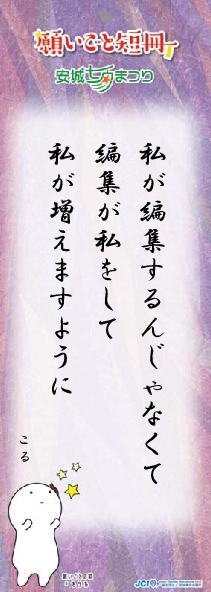 願いごと短冊
安城七夕まつり
私が編集するんじゃなくて
編集が私をして
私が増えますように
こる
JCI